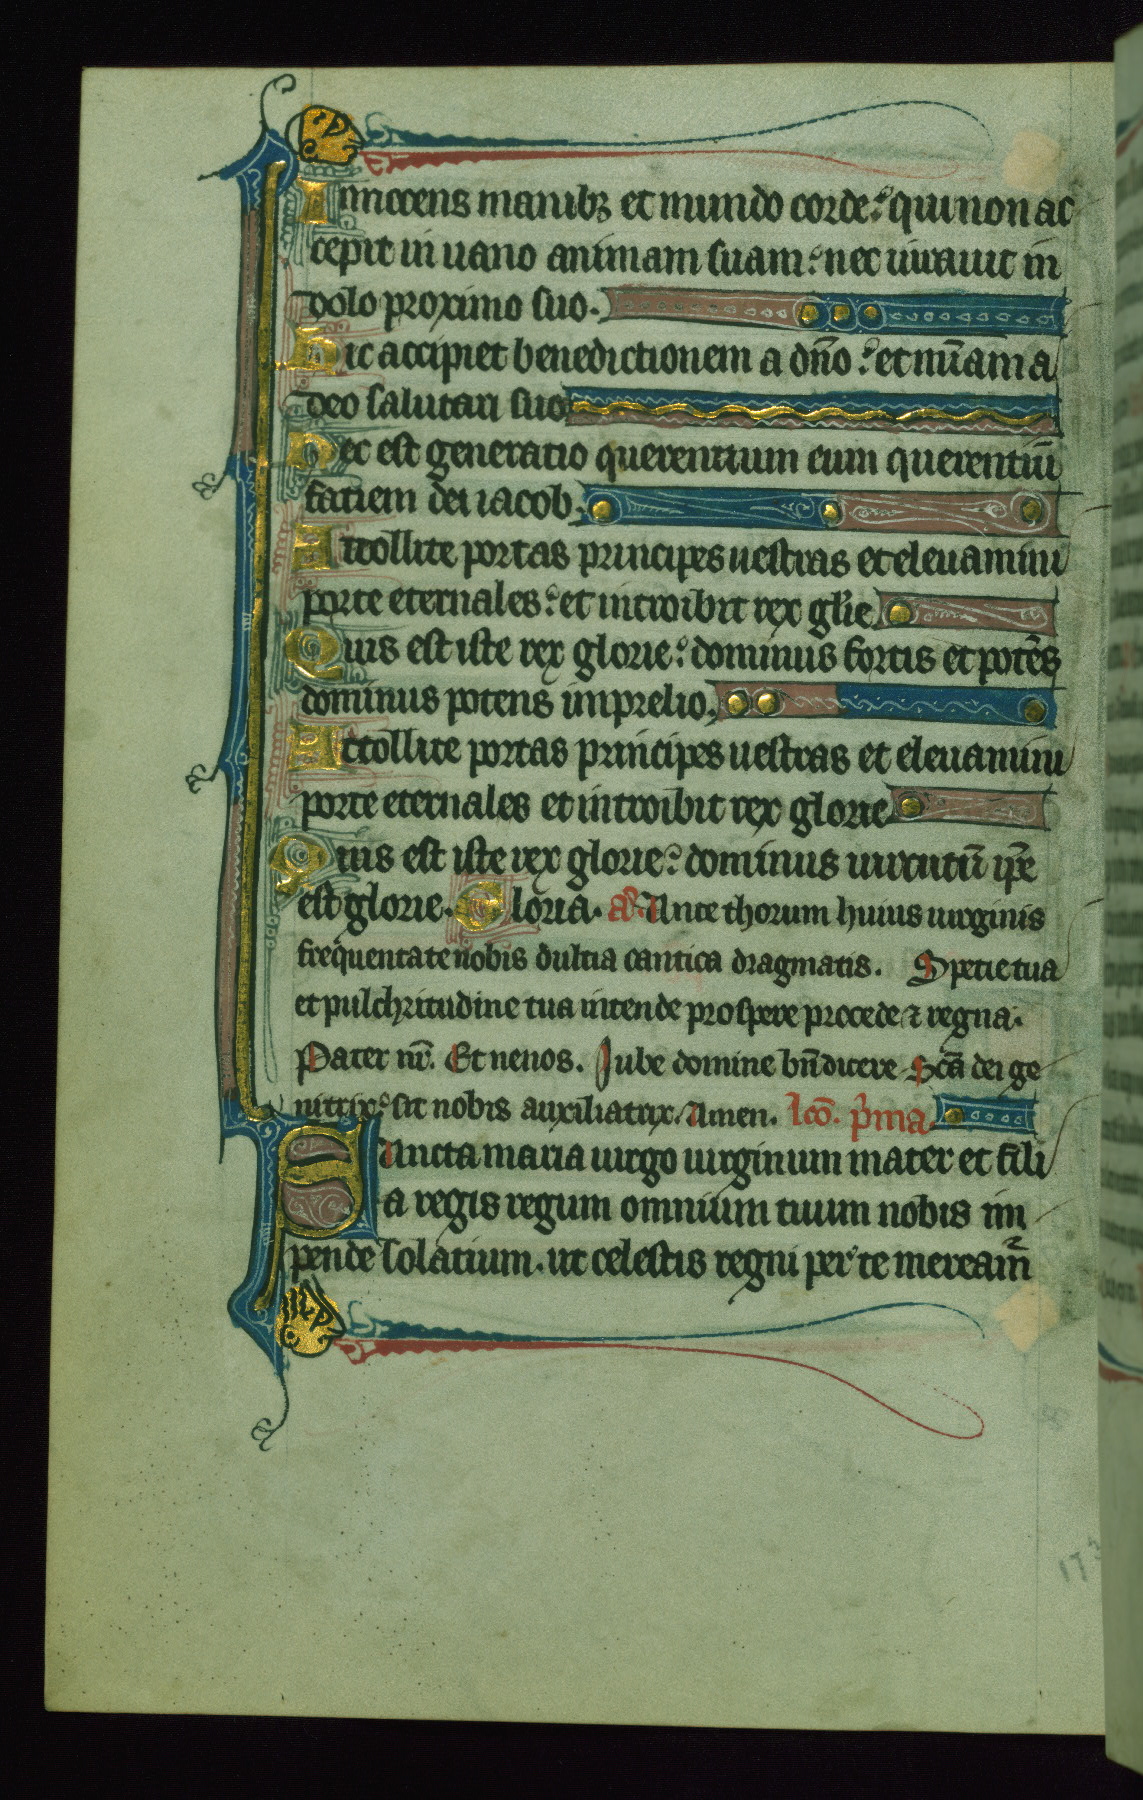 Innocens manibꝫ et mundo corde: qui non ac
cepit in uano animam suam: nec iurauit in
dolo proximo suo.
Hic accipiet benedictionem a dño: et mĩam a
deo salutari suo
Hec est generatio querentium eum querentiũ
faciem dei iacob.
Attollite portas principes uestras et eleuamini
porte eternales: et introibit rex glie
Quis est iste rex glorie: dominus fortis et potẽs
dominus potens in prelio,
Attollite portas principes uestras et eleuamini
porte eternales et introibit rex glorie
Quis est iste rex glorie: dominus uirtutũ ip̃e
est glorie. Gloria. añ Ante thorum huius uirginis
frequentate nobis dulcia cantica dragmatis. Specie tua
et pulchritudine tua intende prospere procede ⁊ regna.
Pater nr̃. Et ne nos. Jube domine bñdicere Scã dei ge
nitrix: sit nobis auxiliatrix. Amen. lcõ. pͥma
Sancta maria uirgo uirginum mater et fili
a regis regum omnium tuum nobis im
pende solatium. ut celestis regni per te mereamr̃